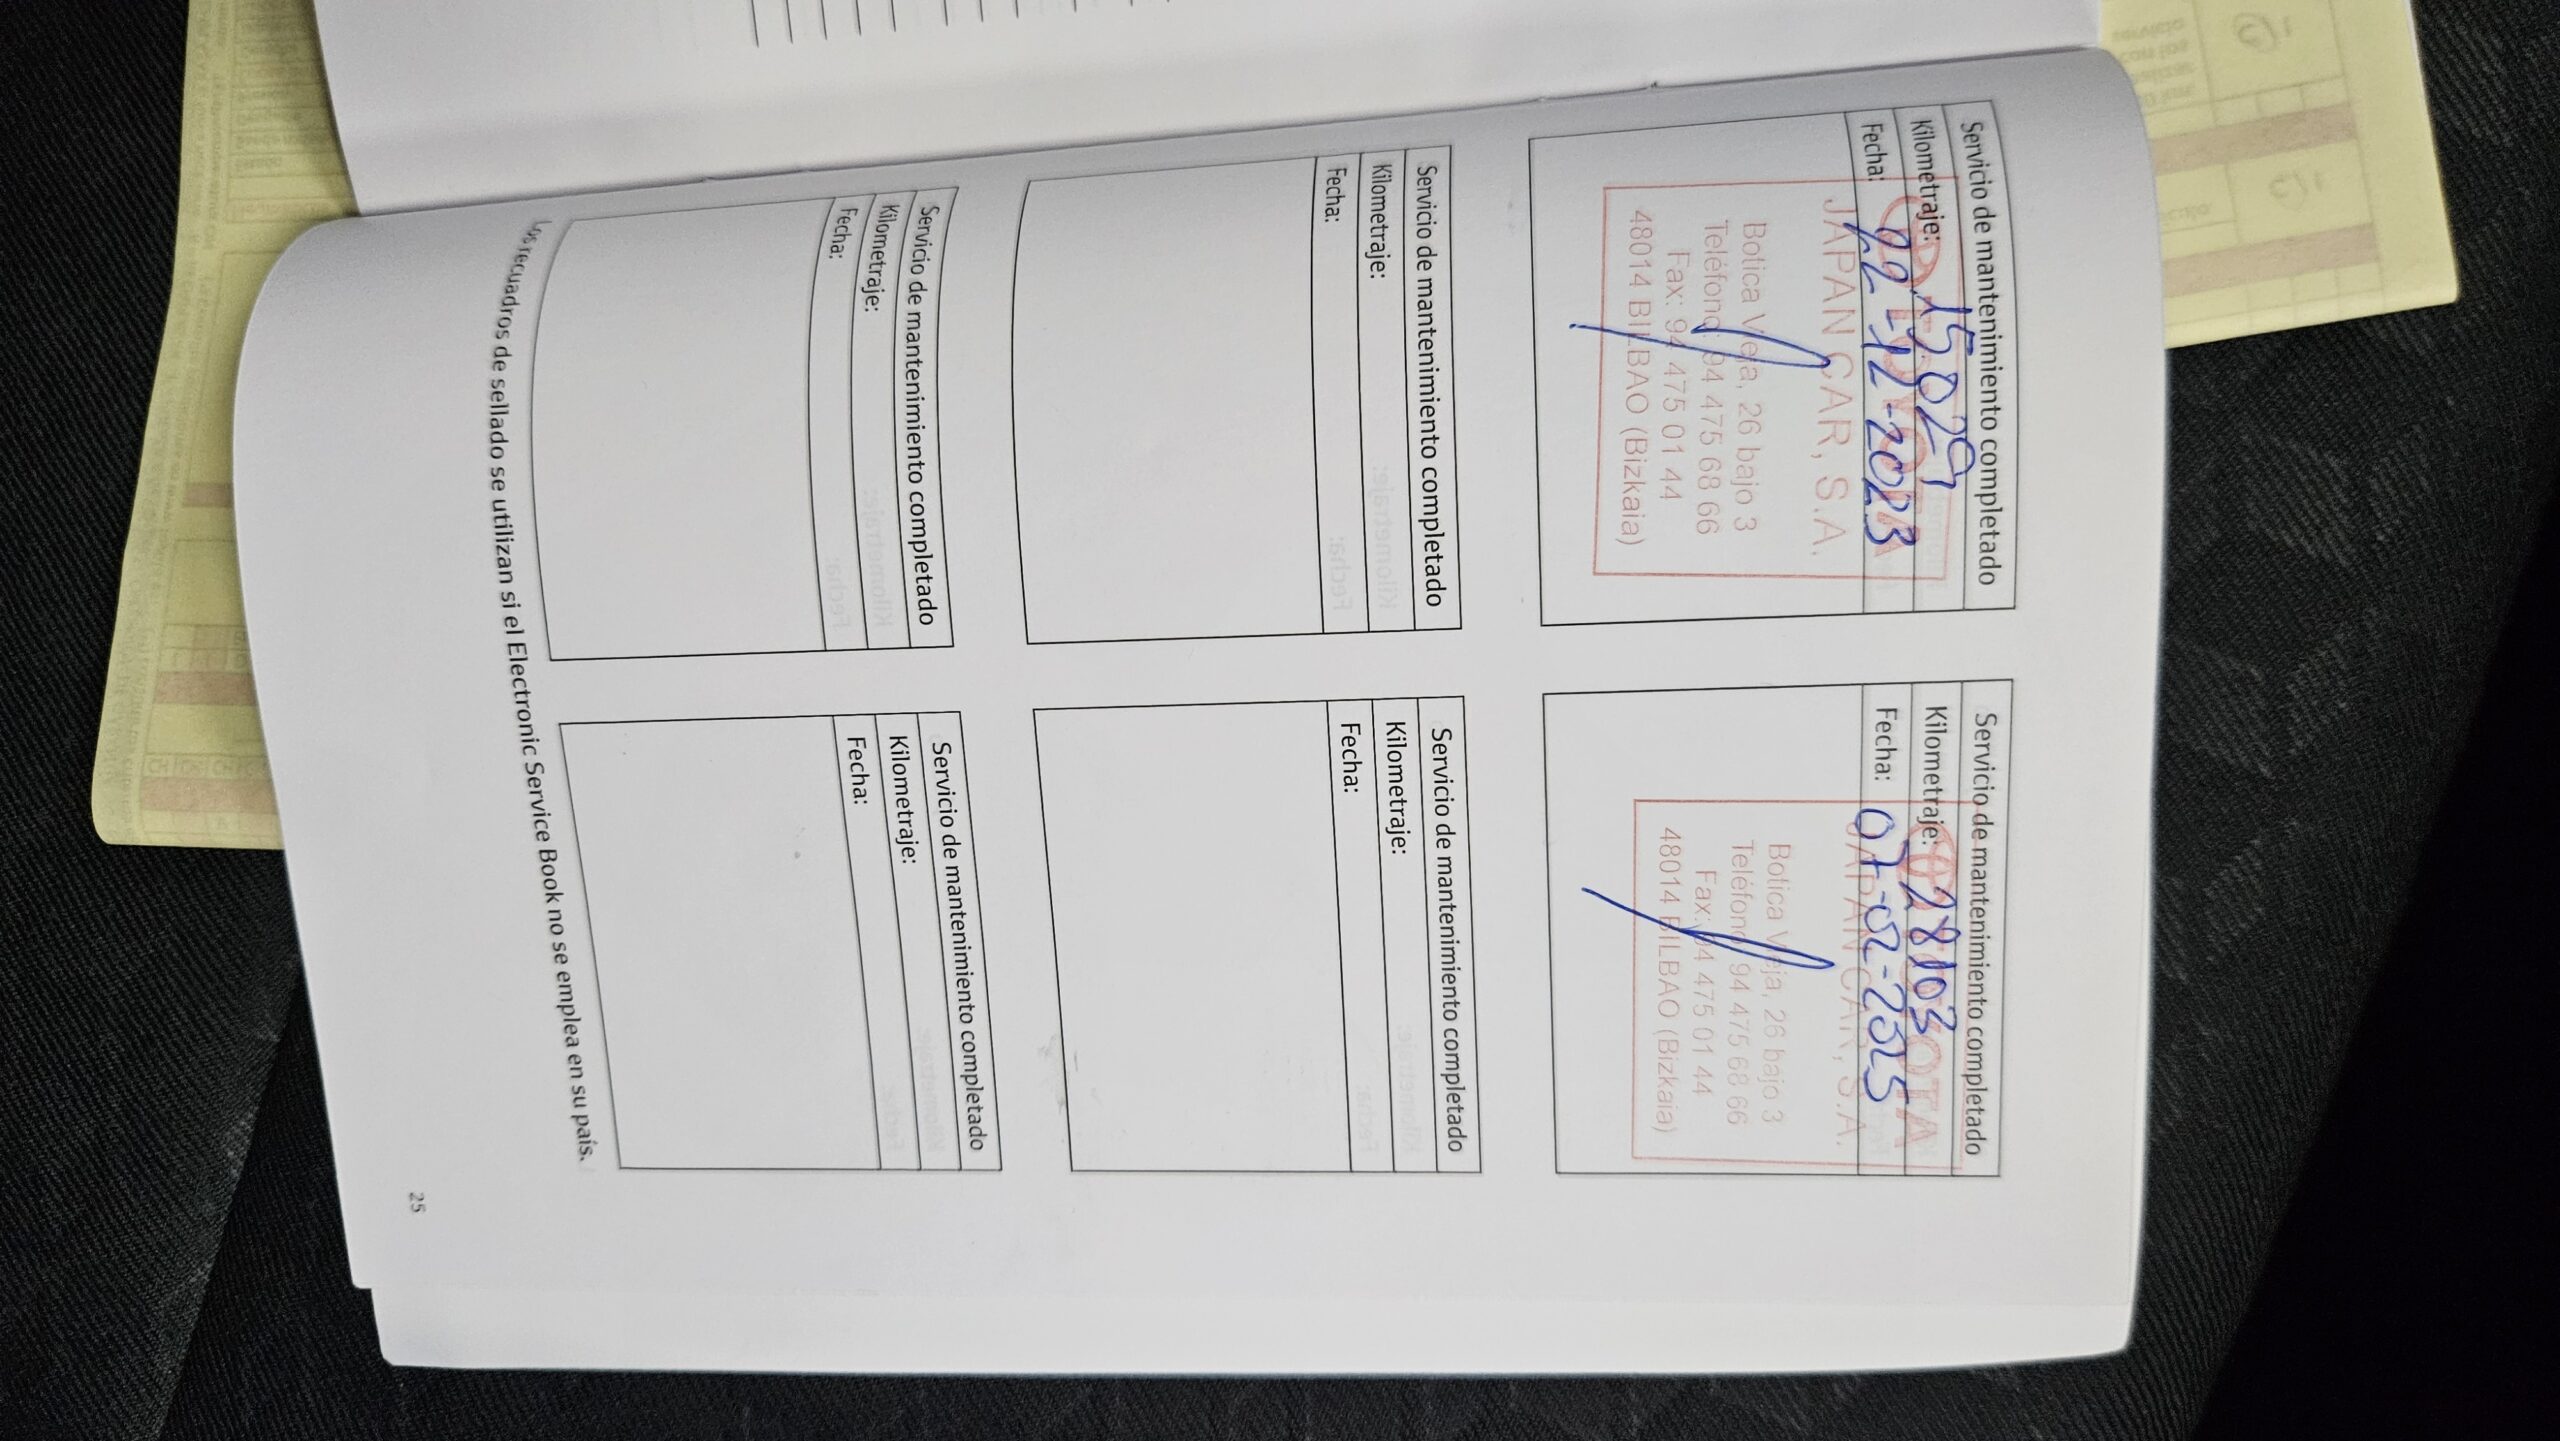 Servicio de mantenimiento completado
Kilometraje: 15029
Fecha: 22-12-2023
TOYOTA
JAPAN CAR, S.A.
Botica Vieja, 26 bajo 3
Teléfono: 94 475 68 66
Fax: 94 475 01 44
48014 BILBAO (Bizkaia)
Servicio de mantenimiento completado
Kilometraje: 28103
Fecha: 07-02-2025
TOYOTA
JAPAN CAR, S.A.
Botica Vieja, 26 bajo 3
Teléfono: 94 475 68 66
Fax: 94 475 01 44
48014 BILBAO (Bizkaia)
Servicio de mantenimiento completado
Kilometraje:
Fecha:
Servicio de mantenimiento completado
Kilometraje:
Fecha:
Servicio de mantenimiento completado
Kilometraje:
Fecha:
Servicio de mantenimiento completado
Kilometraje:
Fecha:
Los recuadros de sellado se utilizan si el Electronic Service Book no se emplea en su país.
25